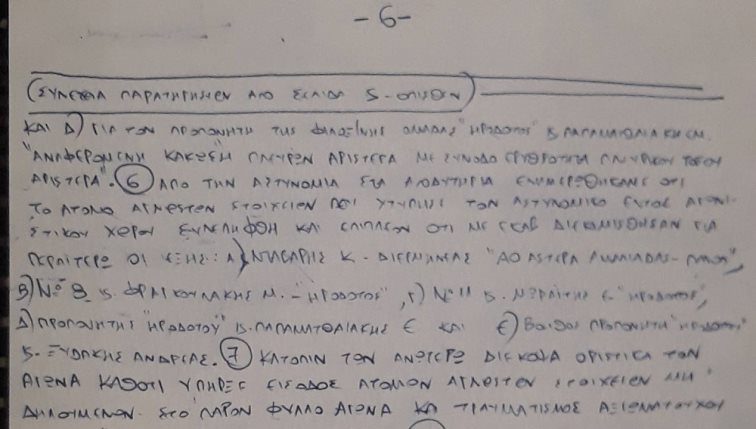 -6-
(ΣΥΝΕΧΕΙΑ ΠΑΡΑΤΗΡΗΣΕΩΝ ΑΠΟ ΣΕΛΙΔΑ 5 - ΟΠΙΣΘΕΝ)
ΚΑΙ Δ) ΓΙΑ ΤΟΝ ΠΡΟΠΟΝΗΤΗ ΤΗΣ ΦΙΛΟΞΕΝΗΣ ΟΜΑΔΑΣ "ΗΡΟΔΟΤΟΣ" κ. ΠΑΠΑΜΑΤΘΑΙΑΚΗ
"ΑΝΑΦΕΡΟΜΕΝΗ ΚΑΚΩΣΗ ΠΛΕΥΡΩΝ ΑΡΙΣΤΕΡΑ ΜΕ ΣΥΝΟΔΟ ΕΡΥΘΡΟΤΗΤΑ ΠΛΕΥΡΙΚΟΥ ΤΟΞΟΥ
ΑΡΙΣΤΕΡΑ". 6 ΑΠΟ ΤΗΝ ΑΣΤΥΝΟΜΙΑ ΣΤΑ ΑΠΟΔΥΤΗΡΙΑ ΕΝΗΜΕΡΩΘΗΚΑΜΕ ΟΤΙ
ΤΟ ΑΤΟΜΟ ΑΓΝΩΣΤΩΝ ΣΤΟΙΧΕΙΩΝ ΠΟΥ ΧΤΥΠΗΣΕ ΤΟΝ ΑΣΤΥΝΟΜΙΚΟ ΕΝΤΟΣ ΑΓΩΝΙ-
ΣΤΙΚΟΥ ΧΩΡΟΥ ΣΥΝΕΛΗΦΘΗ ΚΑΙ ΕΠΙΠΛΕΟΝ ΟΤΙ ΜΕ ΕΚΑΒ ΔΙΕΚΟΜΙΣΘΗΣΑΝ ΓΙΑ
ΠΕΡΑΙΤΕΡΩ ΟΙ ΕΞΗΣ: Α) Κ - ΔΙΕΡΜΗΝΕΑΣ "ΑΟ ΑΣΤΕΡΑ
Β) Νο 8 κ. ΦΡΑΓΚΟΥΛΑΚΗΣ Μ. - "ΗΡΟΔΟΤΟΣ", Γ) Νο 11 κ. Ε "ΗΡΟΔΟΤΟΣ",
Δ) ΠΡΟΠΟΝΗΤΗΣ "ΗΡΟΔΟΤΟΥ" κ. ΠΑΠΑΜΑΤΘΑΙΑΚΗΣ Ε ΚΑΙ Ε) ΒΟΗΘΟΣ ΠΡΟΠΟΝΗΤΗ "ΗΡΟΔΟΤΟΥ"
κ. ΞΥΔΑΚΗΣ ΑΝΔΡΕΑΣ. 7 ΚΑΤΟΠΙΝ ΤΩΝ ΑΝΩΤΕΡΩ ΔΙΕΚΟΨΑ ΟΡΙΣΤΙΚΑ ΤΟΝ
ΑΓΩΝΑ ΚΑΘΟΤΙ ΥΠΗΡΞΕ ΕΙΣΟΔΟΣ ΑΤΟΜΩΝ ΑΓΝΩΣΤΩΝ ΣΤΟΙΧΕΙΩΝ ΜΗ
ΔΗΛΟΥΜΕΝΩΝ ΣΤΟ ΠΑΡΟΝ ΦΥΛΛΟ ΑΓΩΝΑ ΚΑΙ ΤΡΑΥΜΑΤΙΣΜΟΣ ΑΞΙΩΜΑΤΟΥΧΟΥ